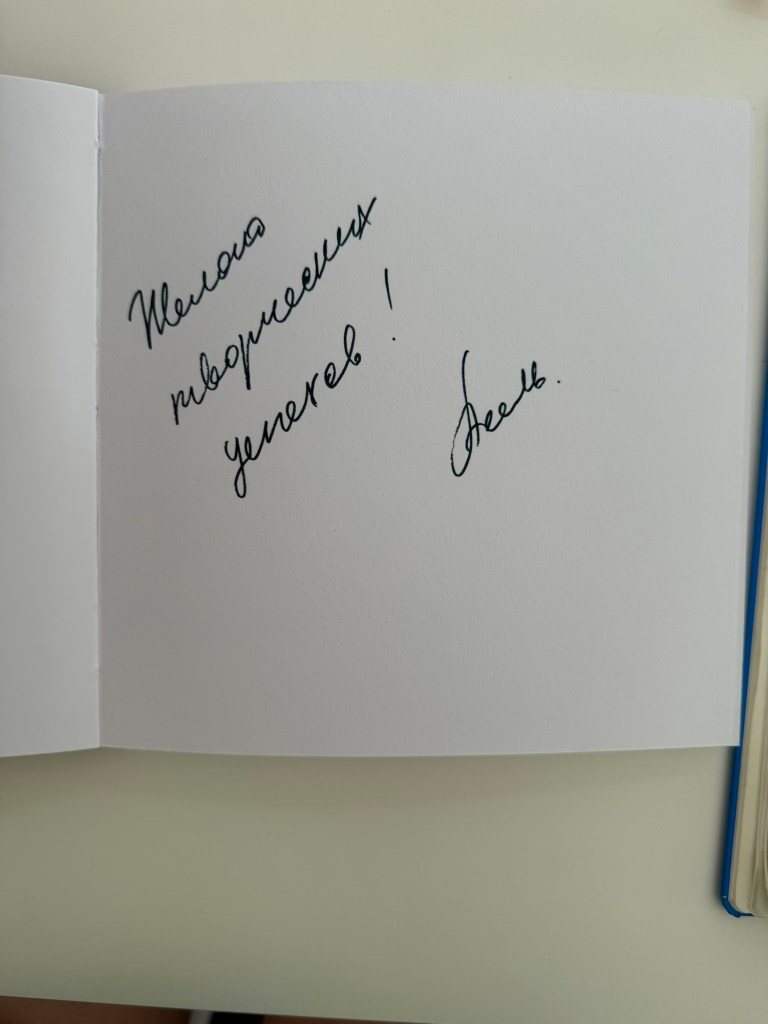 Желаю
творческих
успехов!
Асель.